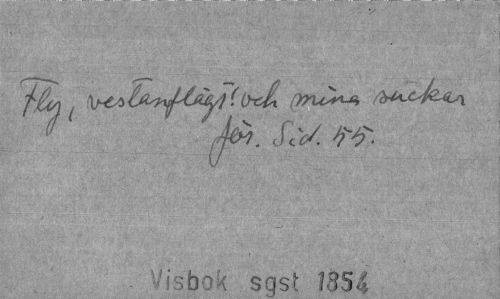 Fly, vestanflägt! och mina suckar
för. Sid. 55.
Visbok sgst 1854